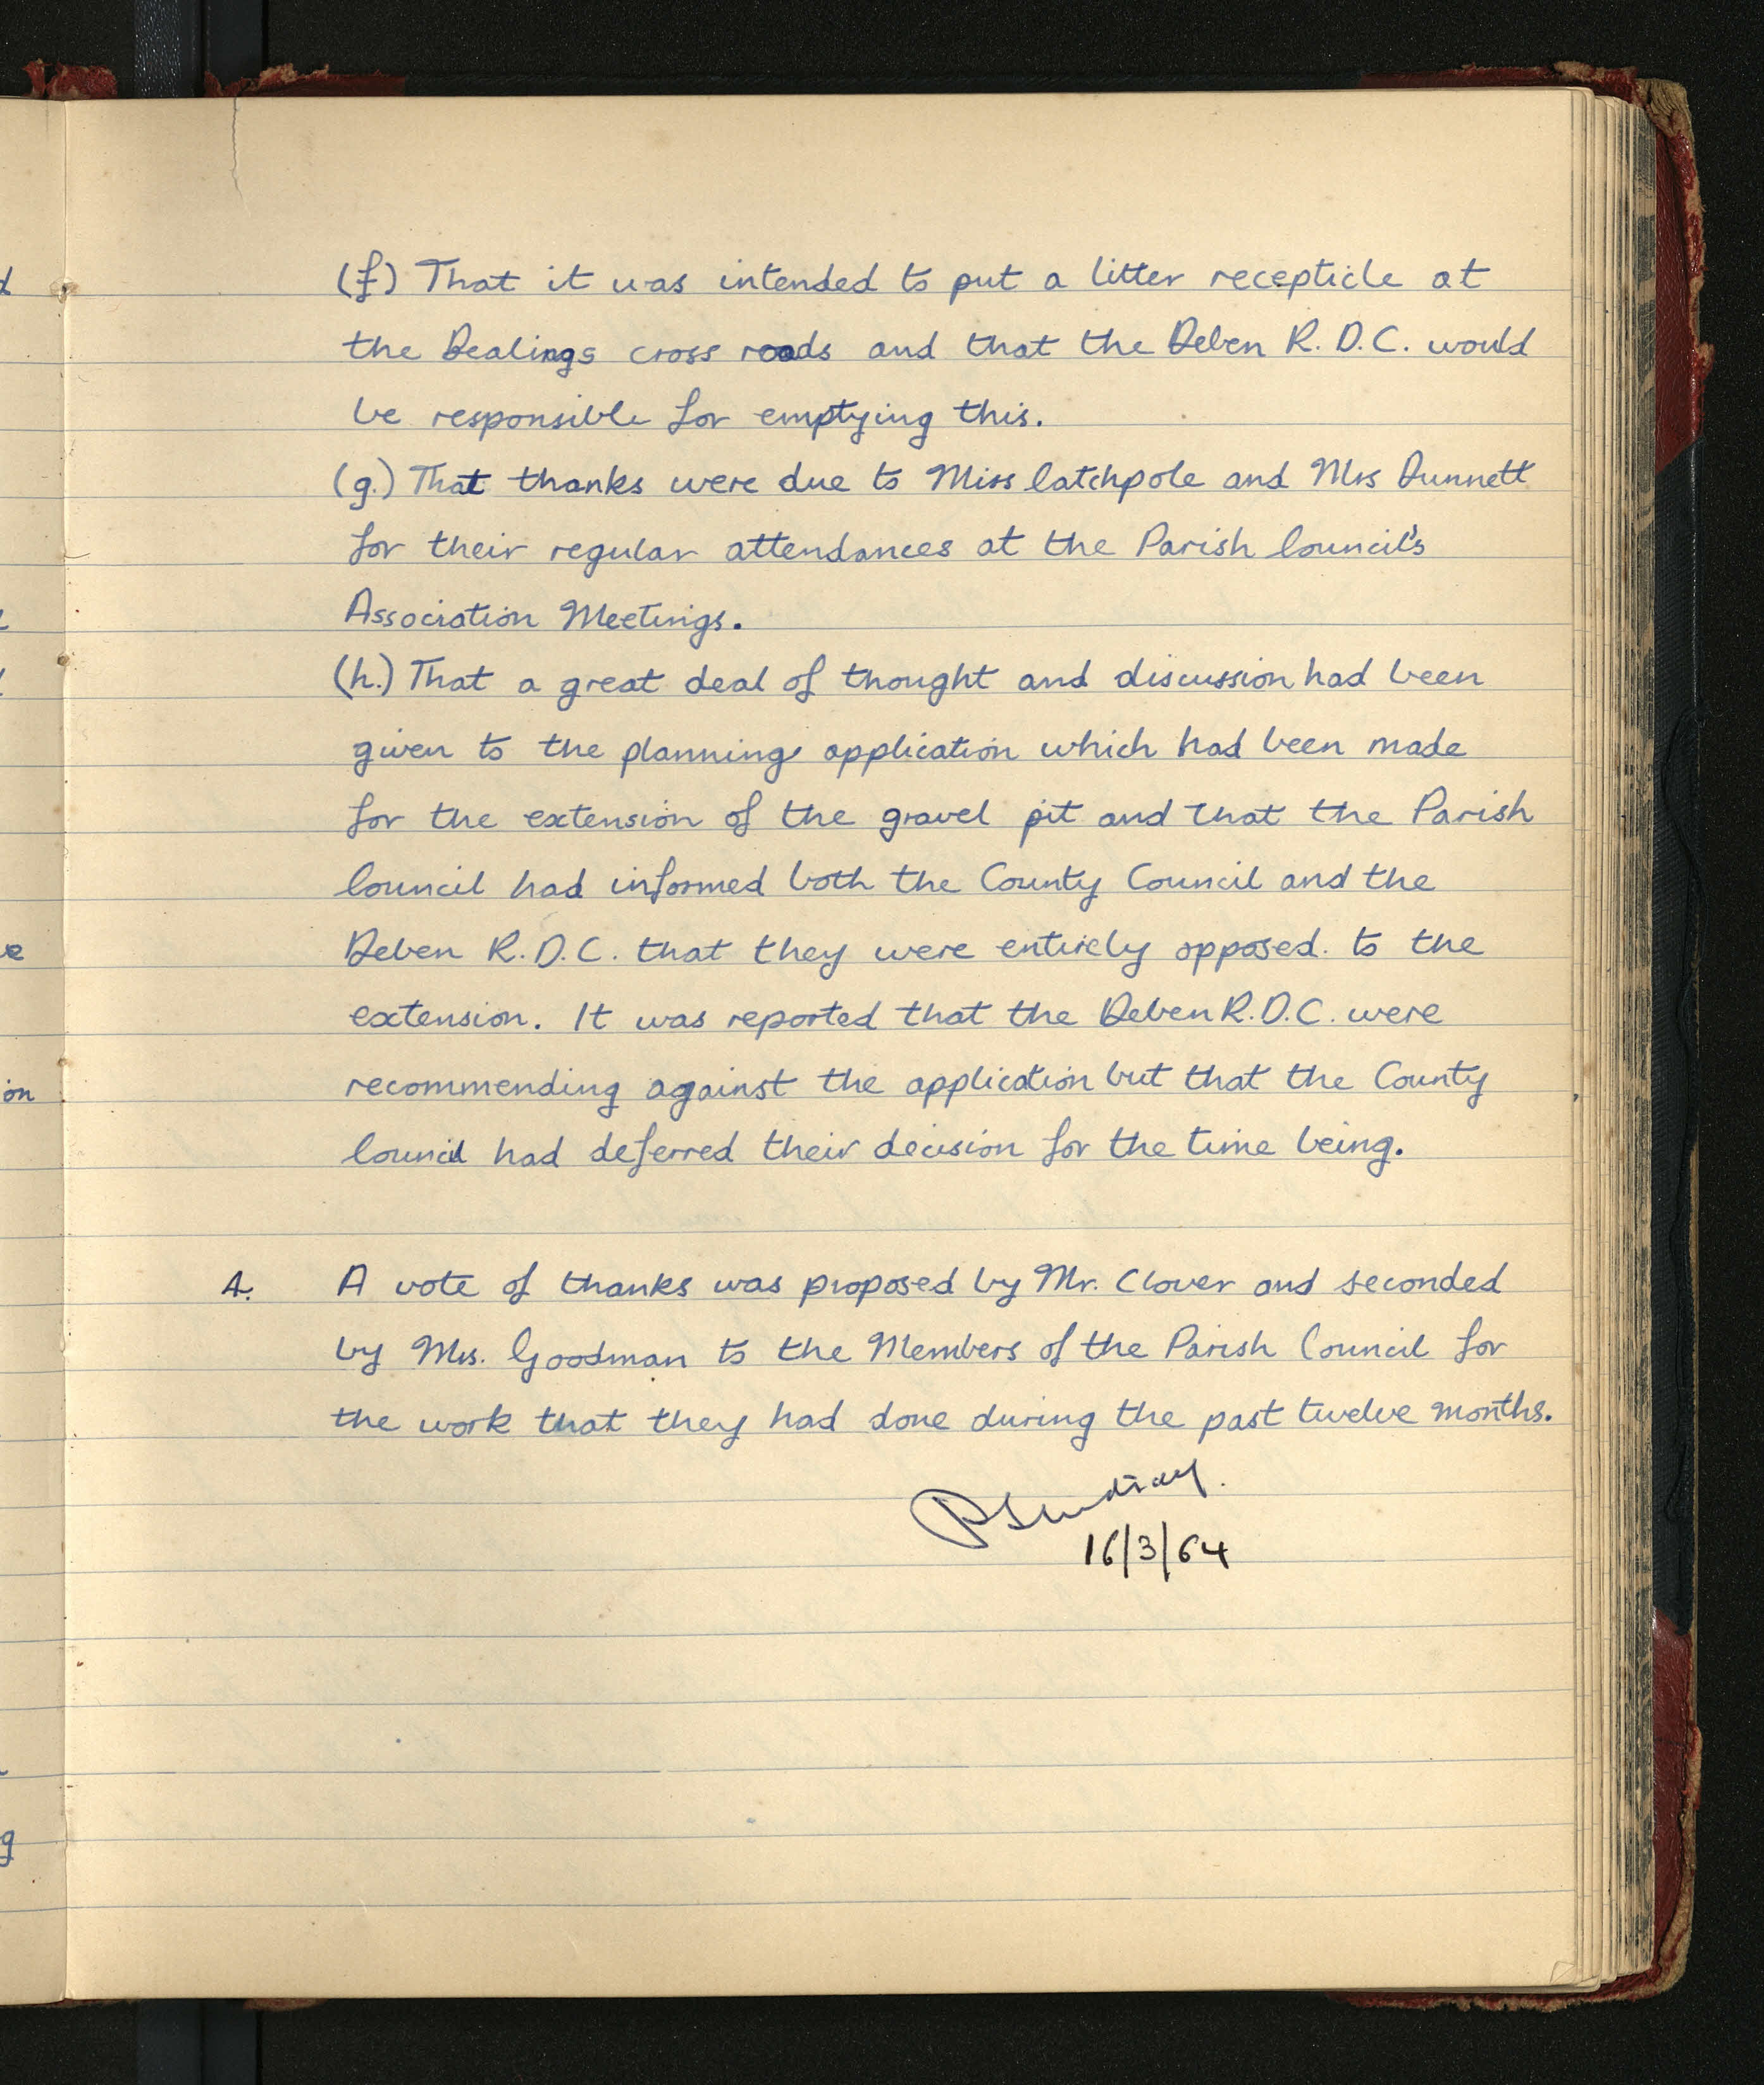 (f) That it was intended to put a litter recepticle at
the Bealings cross roads and that the Deben R.D.C. would
be responsible for emptying this.
(g.) That thanks were due to Miss Catchpole and Mrs Dunnett
for their regular attendances at the Parish Council's
Association Meetings.
(h.) That a great deal of thought and discussion had been
given to the planning application which had been made
for the extension of the gravel pit and that the Parish
Council had informed both the County Council and the
Deben R.D.C. that they were entirely opposed. to the
extension. It was reported that the Deben R.D.C. were
recommending against the application but that the County
Council had deferred their decision for the time being.
4. A vote of thanks was proposed by Mr. Clover and seconded
by Mrs. Goodman to the Members of the Parish Council for
the work that they had done during the past twelve months.
16/3/64